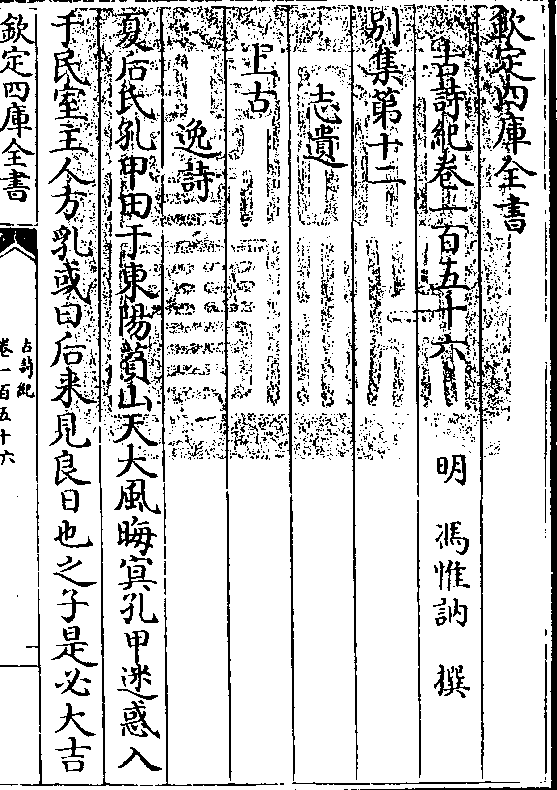 欽定四庫全書
古詩紀卷一百五十六　明　馮惟訥　撰
別集第十二
志遺
上古
逸詩
夏后氏孔甲田于東陽萯山天大風晦冥孔甲迷惑入
于民室主人方乳或曰后来見良日也之子是必大吉
欽定四庫全書
古詩紀
卷一百五十六
一